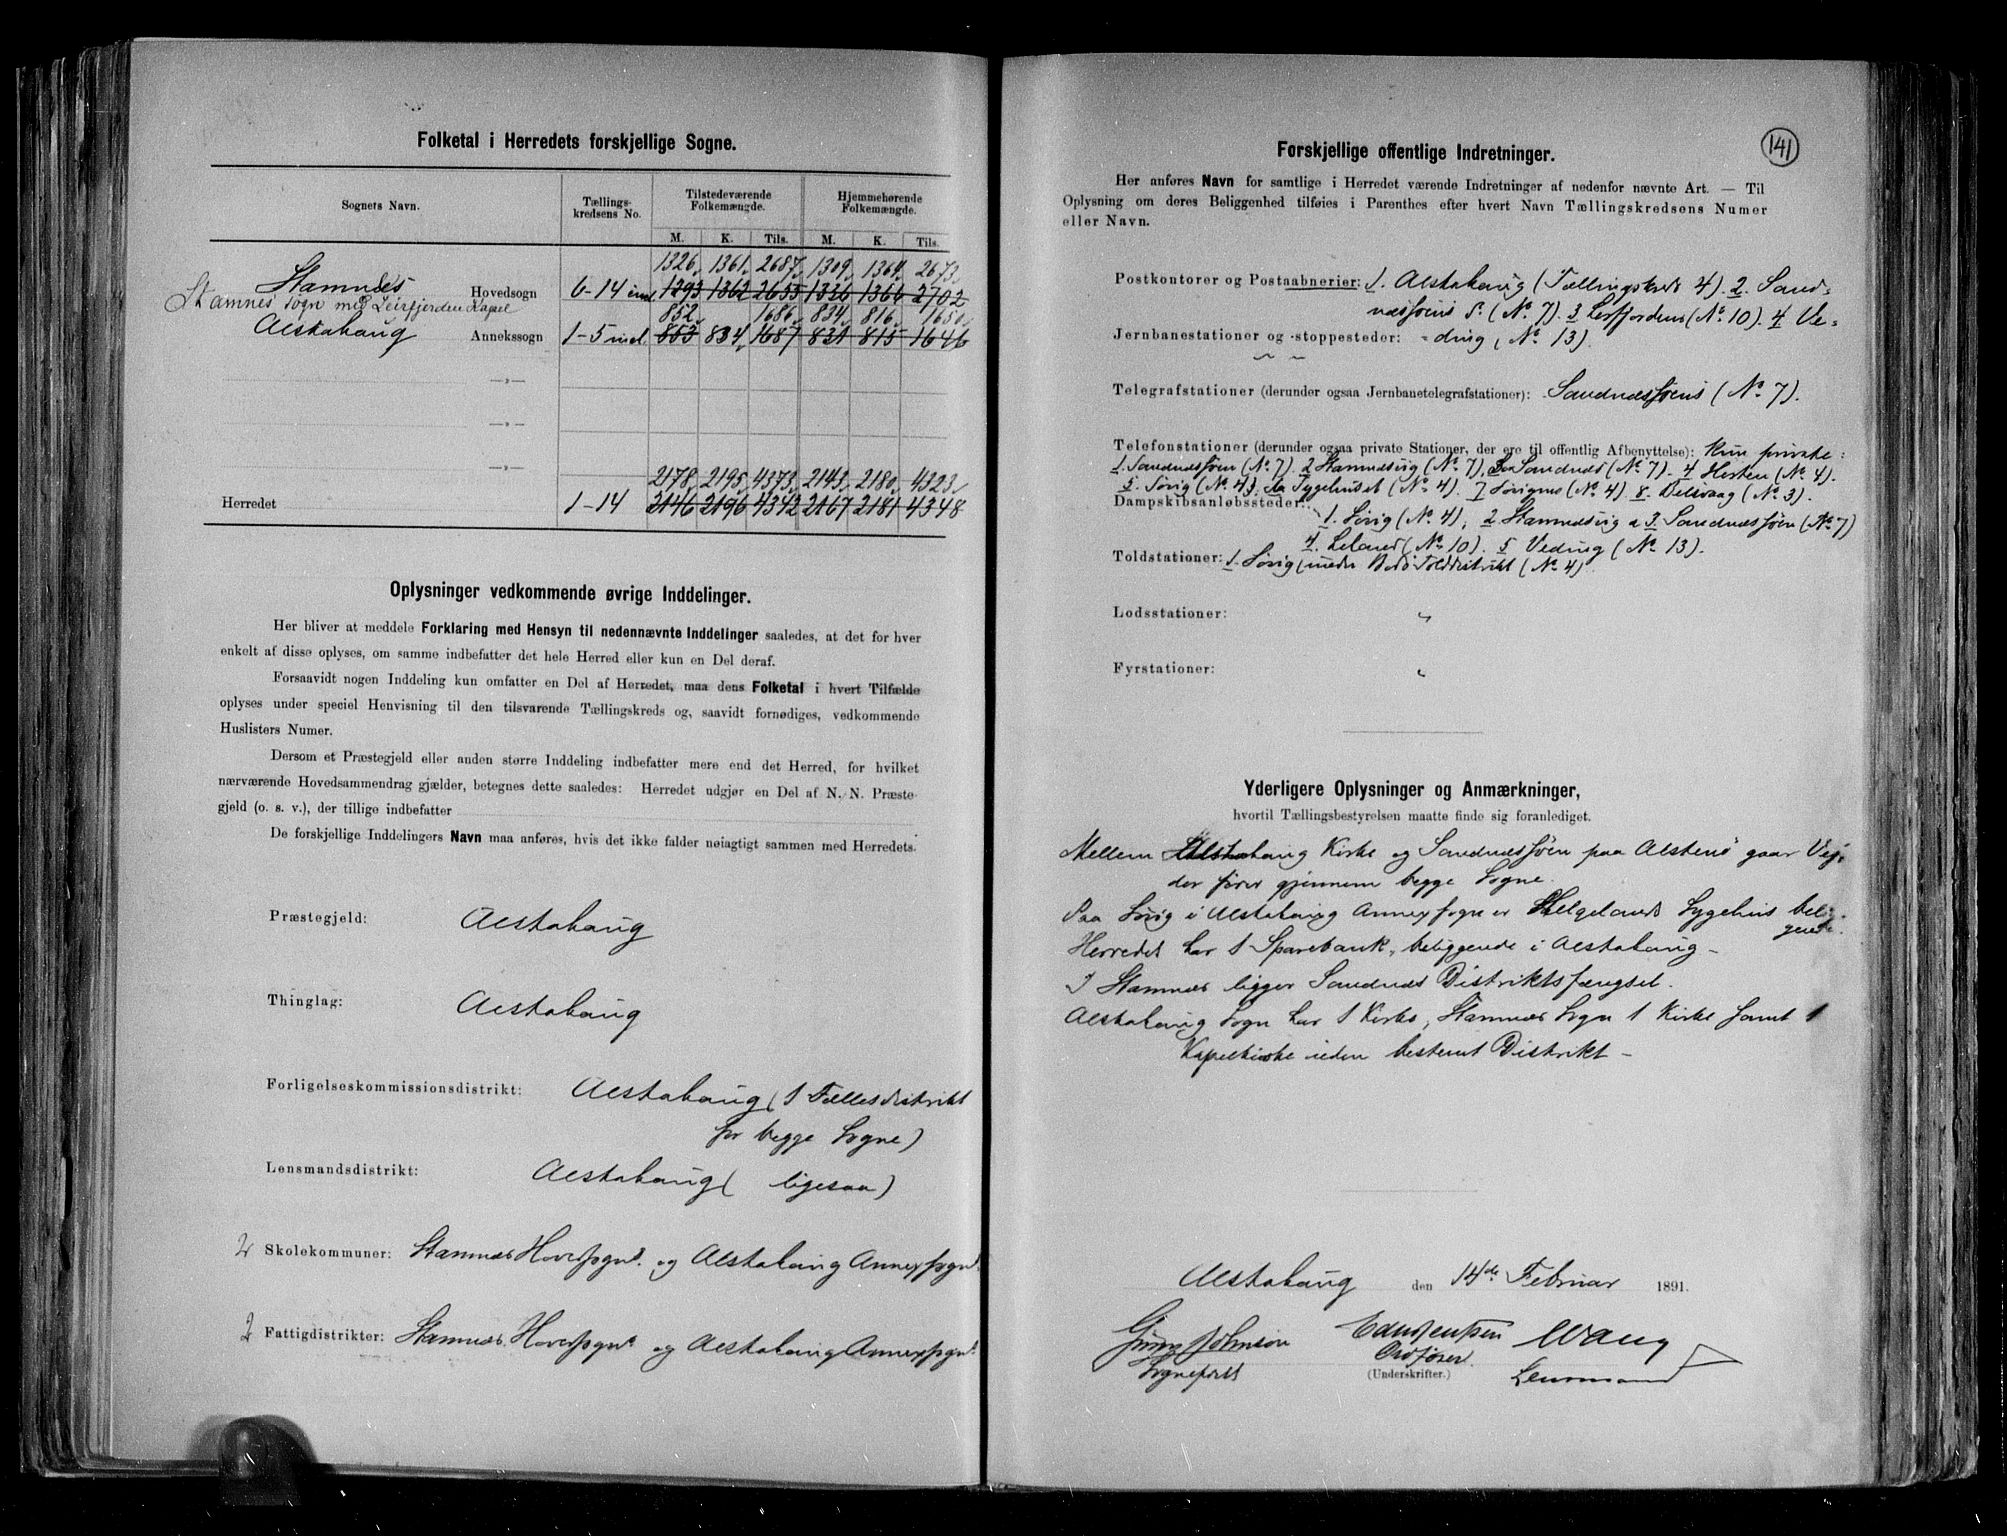 Folketal i Herredets forskjellige Sogne.
Sognets Navn. Tællings-kredsens No. Tilstedeværende Folkemængde. Hjemmehørende Folkemængde.
M. K. Tils. M. K. Tils.
1326 1361 2687 1309 1364 2673
Stamnes Hovedsogn 6-14 incl. 1293 1362 2655 1336 1366 2702
Stamnes Sogn med Leirfjorden Kapel
852 1686 834 816 1650
Alstahaug Annekssogn 1-5 incl. 853 834 1687 831 815 1646
—„—
—„—
—„—
2178 2195 4373 2143 2180 4323
Herredet 1-14 2146 2196 4342 2167 2181 4348
Oplysninger vedkommende øvrige Inddelinger.
Her bliver at meddele Forklaring med Hensyn til nedennævnte Inddelinger saaledes, at det for hver
enkelt af disse oplyses, om samme indbefatter det hele Herred eller kun en Del deraf.
Forsaavidt nogen Inddeling kun omfatter en Del af Herredet, maa dens Folketal i hvert Tilfælde
oplyses under speciel Henvisning til den tilsvarende Tællingskreds og, saavidt fornødiges, vedkommende
Huslisters Numer.
Dersom et Præstegjeld eller anden større Inddeling indbefatter mere end det Herred, for hvilket
nærværende Hovedsammendrag gjælder, betegnes dette saaledes: Herredet udgjør en Del af N. N. Præste-
gjeld (o. s. v.), der tillige indbefatter
De forskjellige Inddelingers Navn maa anføres, hvis det ikke falder nøiagtigt sammen med Herredets.
Præstegjeld: Alstahaug
Thinglag: Alstahaug
Forligelseskommissionsdistrikt: Alstahaug (1 Fællesdistrikt
for begge Sogne)
Lensmandsdistrikt: Alstahaug (ligesaa)
2 Skolekommuner: Stamnes Hovedsogn og Alstahaug Annexsogn
2 Fattigdistrikter: Stamnes Hovedsogn og Alstahaug Annexsogn
141
Forskjellige offentlige Indretninger.
Her anføres Navn for samtlige i Herredet værende Indretninger af nedenfor nævnte Art. — Til
Oplysning om deres Beliggenhed tilføies i Parenthes efter hvert Navn Tællingskredsens Numer
eller Navn.
Postkontorer og Postaabnerier: 1. Alstahaug (Tællingskreds 4). 2. Sand-
næssøens P. (No. 7). 3 Lerfjordens (No. 10). 4 Ve-
Jernbanestationer og -stoppesteder: =ding (No. 13).
Telegrafstationer (derunder ogsaa Jernbanetelegrafstationer): Sandnæssøens (No. 7).
Telefonstationer (derunder ogsaa private Stationer, der ere til offentlig Afbenyttelse): Kun private:
1. Sandnæssøen (No. 7). 2 Stamnesvig (No. 7), 3 Sandnes (No. 7). 4 Herten (No. 4).
5. Søvig (No. 4), 6 Sygehuset (No. 4). 7 Søvignes (No. 4) 8. Belsvaag (No. 3).
Dampskibsanløbssteder: 1. Søvig (No. 4), 2 Stamnesvig & 3 Sandnæssøen (No. 7)
4. Leland (No. 10). 5 Veding (No. 13).
Toldstationer: 1. Søvig (under Bodø Tolddistrikt (No. 4)
Lodsstationer: „
Fyrstationer: „
Yderligere Oplysninger og Anmærkninger,
hvortil Tællingsbestyrelsen maatte finde sig foranlediget.
Mellem Alstahaug Kirke og Sandnæssøen paa Alstenø gaar Vej
der fører gjennem begge Sogne.
Paa Søvig i Alstahaug Annexsogn er Helgelands Sygehus belig-
gende.
Herredet har 1 Sparebank, beliggende i Alstahaug –
I Stamnes ligger Sandnes Distriktsfængsel.
Alstahaug Sogn har 1 Kirke, Stamnes Sogn 1 Kirke samt 1
Kapelkirke uden bestemt Distrikt –
Alstahaug den 14de Februar 1891.
Johnson Wang
Ordfører.
Sogneprest (Underskrifter.) Lensmand